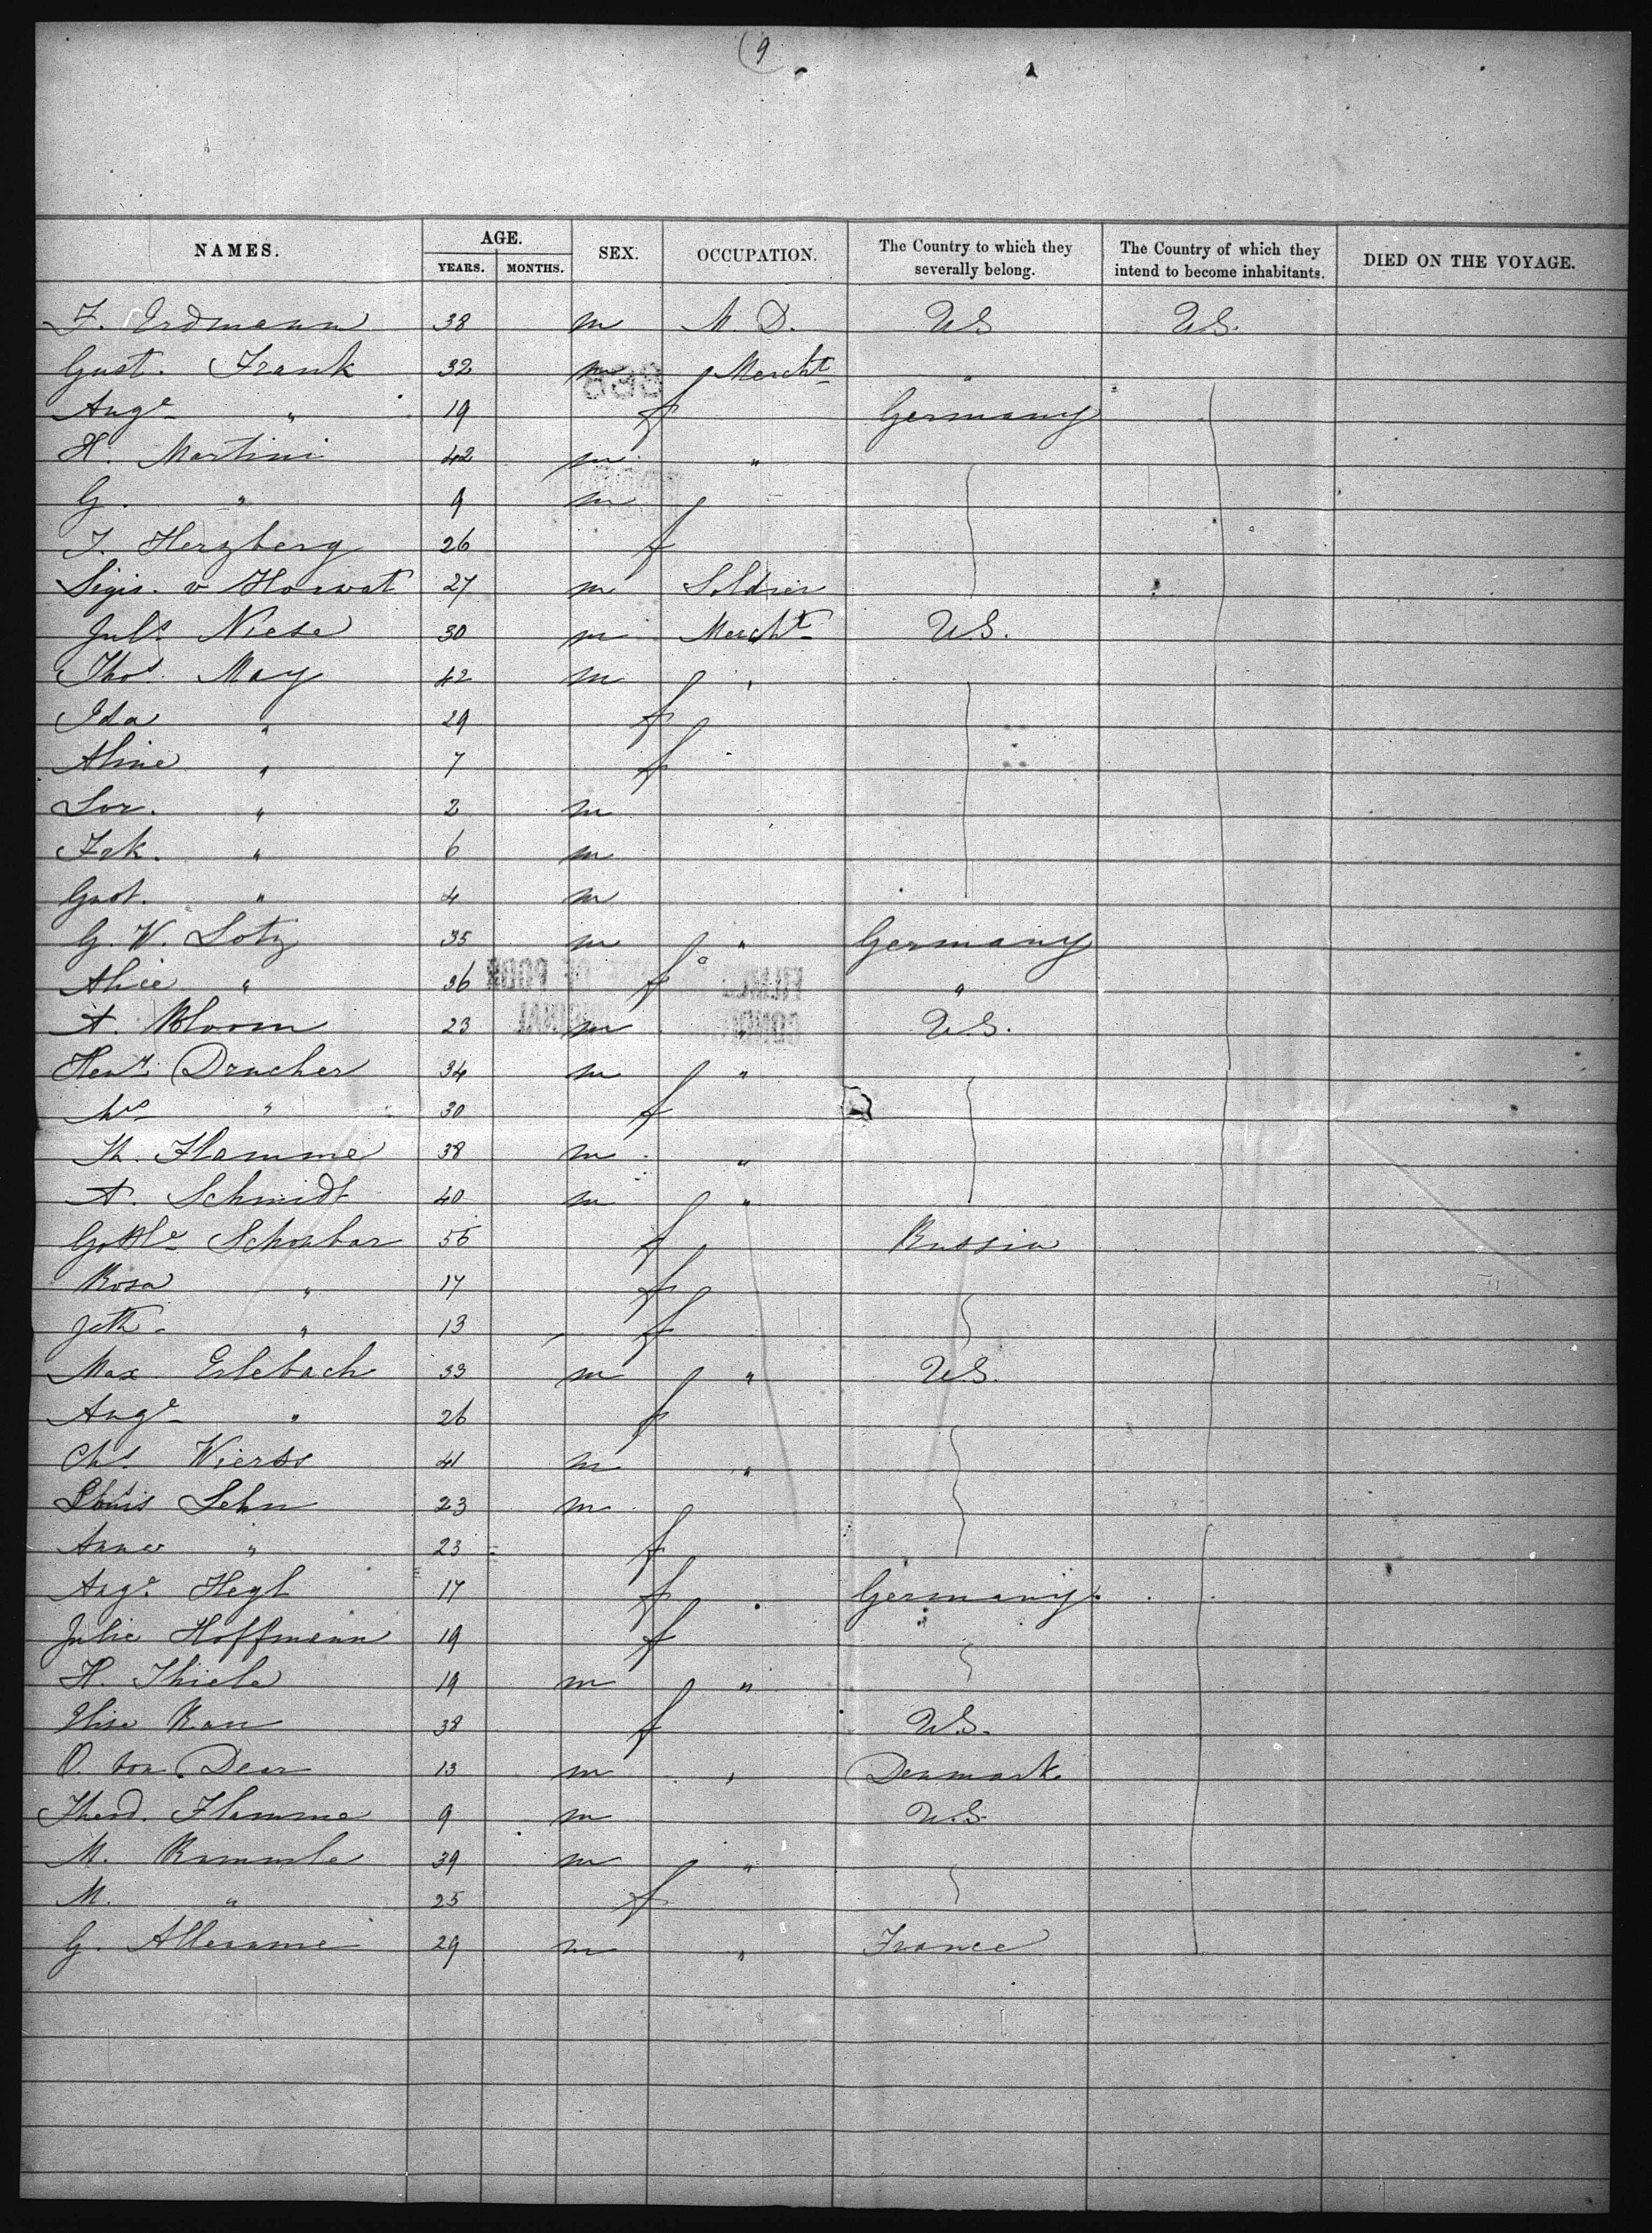 (9
NAMES. AGE. YEARS. MONTHS. SEX. OCCUPATION. The Country to which they severally belong. The Country of which they intend to become inhabitants. DIED ON THE VOYAGE.
F. Erdmann 38 m M. D. US US.
Gust. Frank 32 m Mercht "
Auge " 19 f Germany
H. Martini 42 m "
G. " 9 m
J. Herzberg 26 f
Sigis. v Horwat 27 m Soldier
Juls. Niese 30 m Mercht U.S.
Thos. May 42 m "
Ida " 29 f
Aline " 7 f
Lor. " 2 m
Frk. " 6 m
Gust. " 4 m
G. W. Lotz 35 m " Germany
Alice " 36 f "
A. Bloom 23 m " U.S.
Henr. Drucher 34 m "
Mrs " 30 f
Th. Flamme 38 m "
A. Schmidt 40 m "
Schoubar 56 f Russia
Rosa " 17 f
Jeth. " 13 f
Max Erlebach 33 m " U.S.
Auge " 26 f
Chs. Wierss 41 m "
Louis Lehn 23 m
Anna " 23 f
Auge Hegl 17 f Germany
Julie Hoffmann 19 f
H. Thiele 19 m "
Elise Rau 38 f U.S.
O. von Dear 13 m " Denmark
Theod. Flamme 9 m U.S.
M. 39 m "
M. " 25 f
G. Allemme 29 m " France